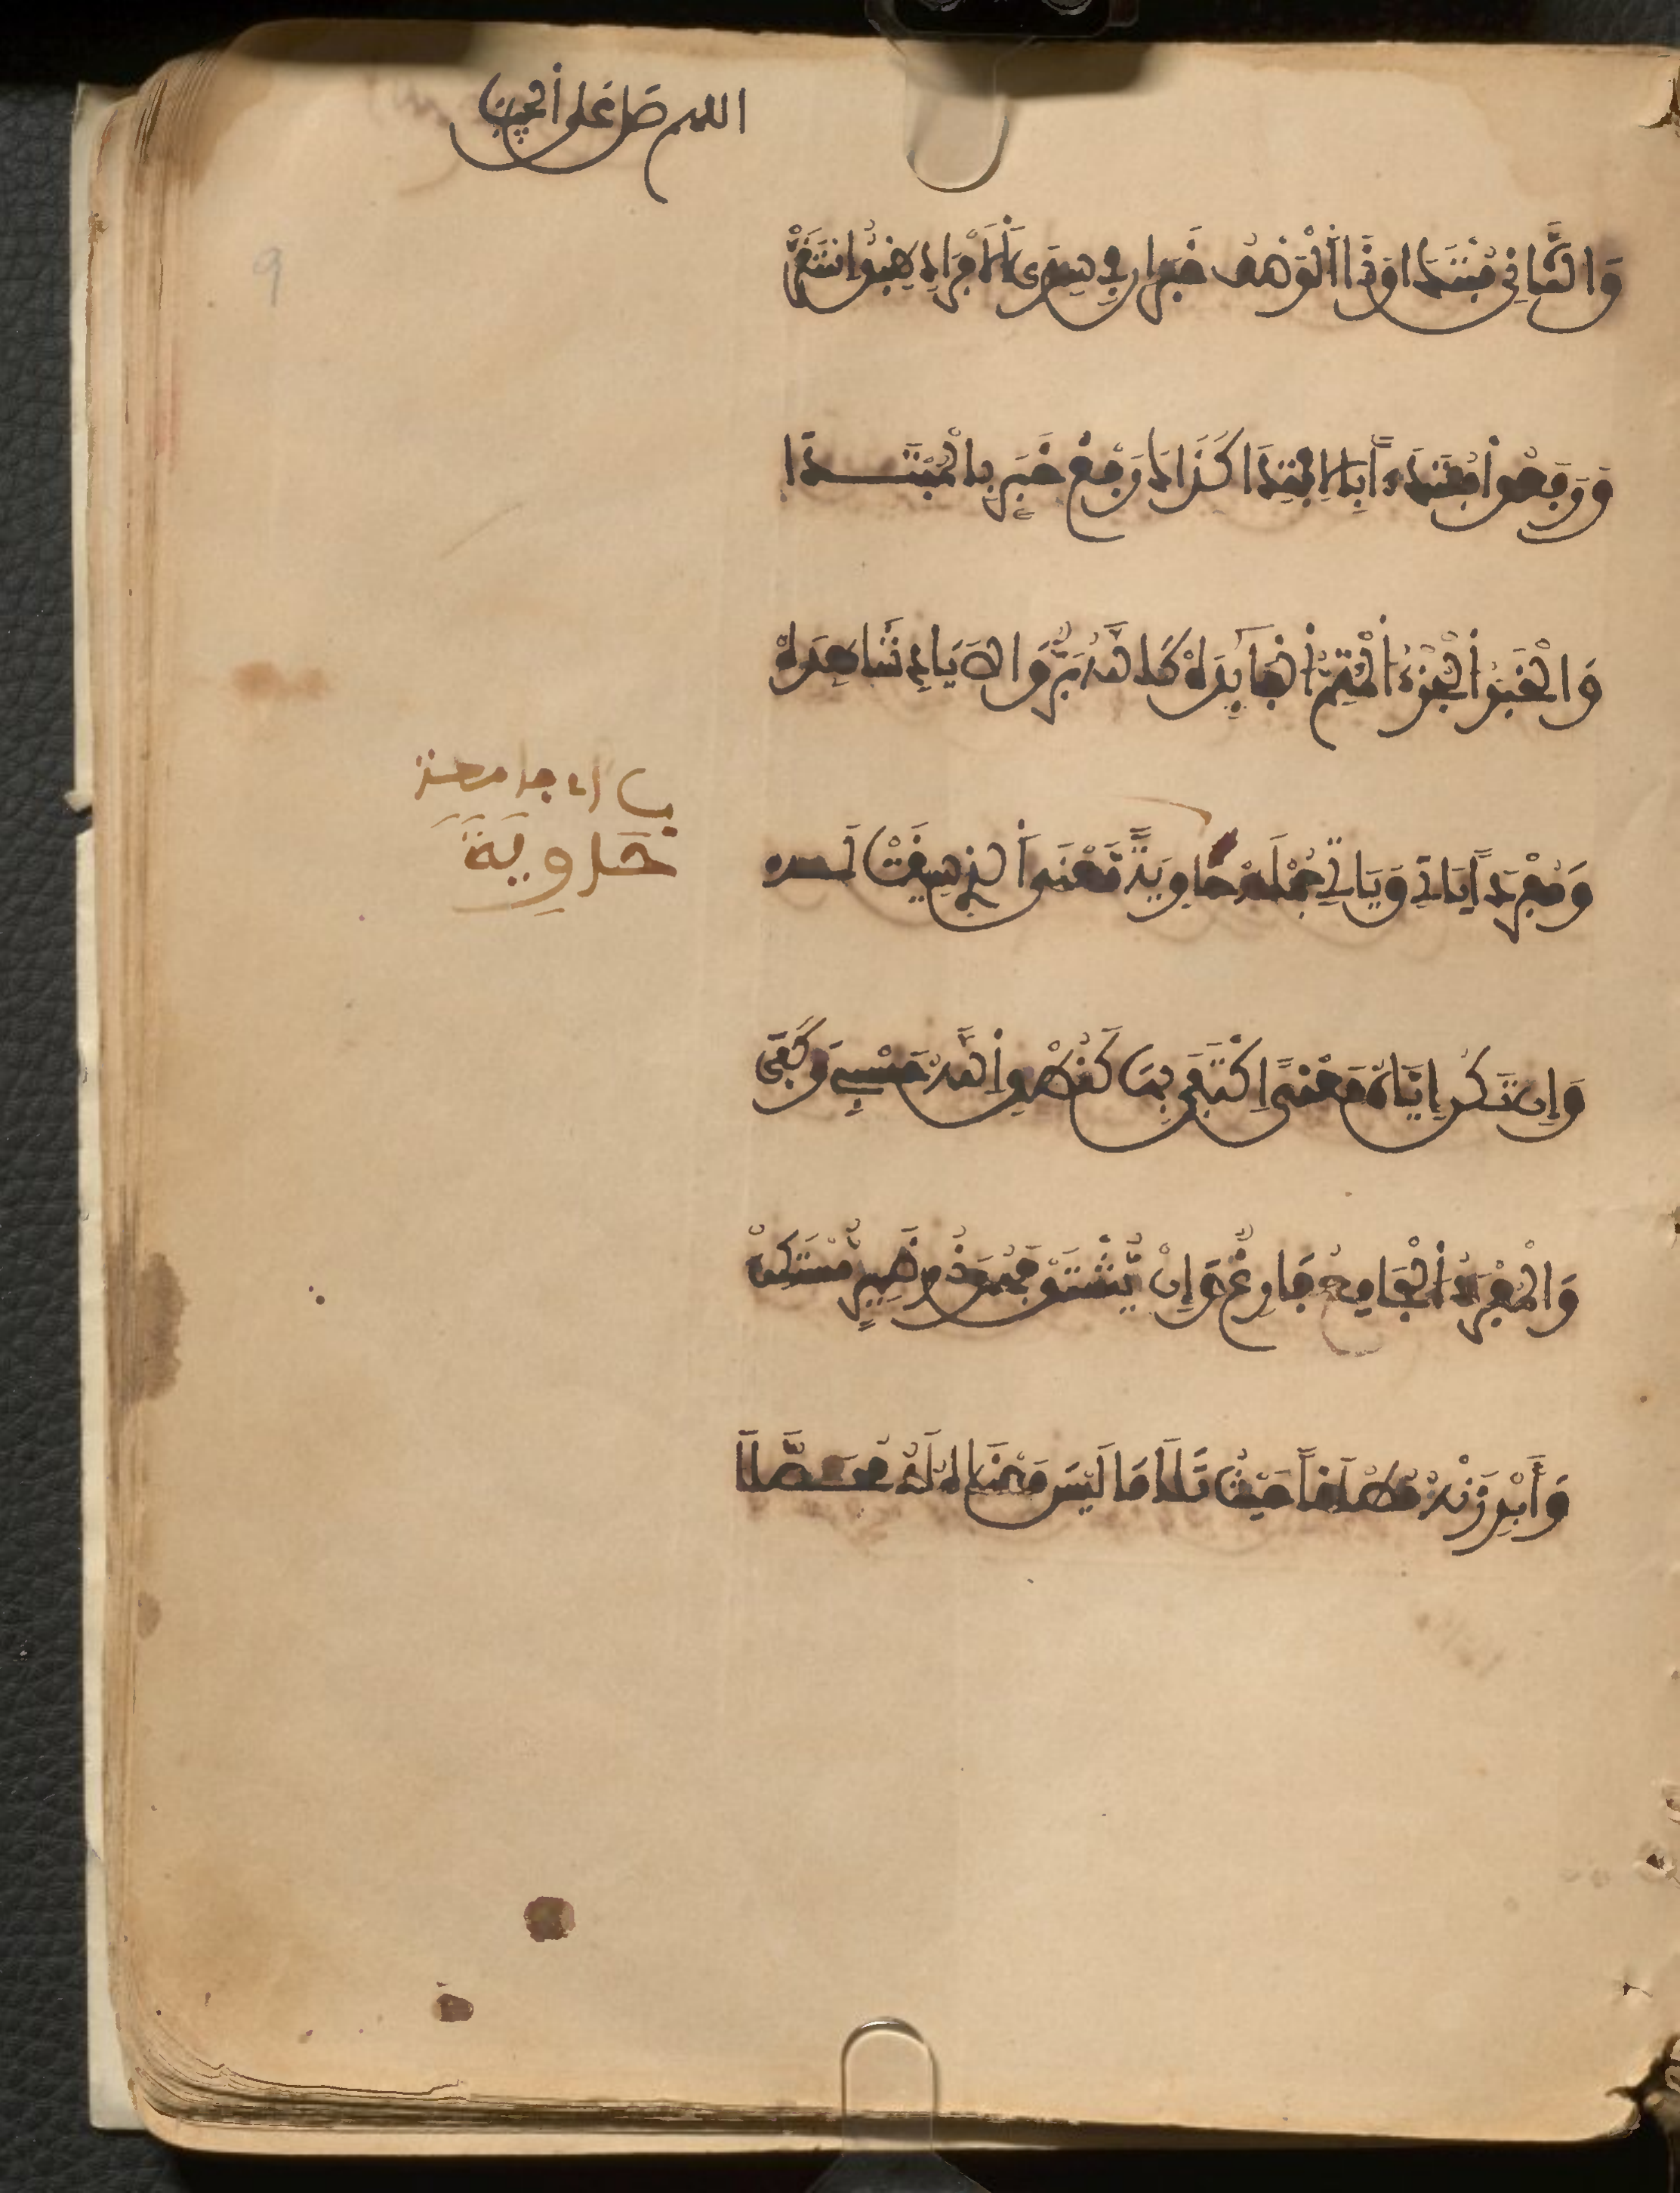 اللهم صل على
وَالثَّانِ مُبْتَدَا وَذَا الْوَصْفُ خَبَرْ إِنْ فِي سِوَى الْإِفْرَادِ طِبْقًا اسْتَقَرّْ
وَرَفَعُوا مُبْتَدَءًا بِالِابْتِدَا كَذَاكَ رَفْعُ خَبَرٍ بِالْمُبْتَدَا
وَالْخَبَرُ الْجُزْءُ الْمُتِمُّ الْفَايِدَهْ كَاللَّهُ بَرٌّ وَالْأَيَادِي شَاهِدَهْ
وَمُفْرَدًا يَاتِي وَيَاتِي جُمْلَهْ حَاوِيَةً مَعْنَى الَّذِي سِيقَتْ لَهْ
اي جامعة
حَاوِيَةً
وَإِنْ تَكُنْ إِيَّاهُ مَعْنًى اكْتَفَى بِهَا كَنُطْقِي اللَّهُ حَسْبِي وَكَفَى
وَالْمُفْرَدُ الْجَامِدُ فَارِغٌ وَإِنْ يُشْتَقَّ فَهْوَ ذُو ضَمِيرٍ مُسْتَكِنْ
وَأَبْرِزَنْهُ مُطْلَقًا حَيْثُ تَلَا مَا لَيْسَ مَعْنَاهُ لَهُ مُحَصَّلَا